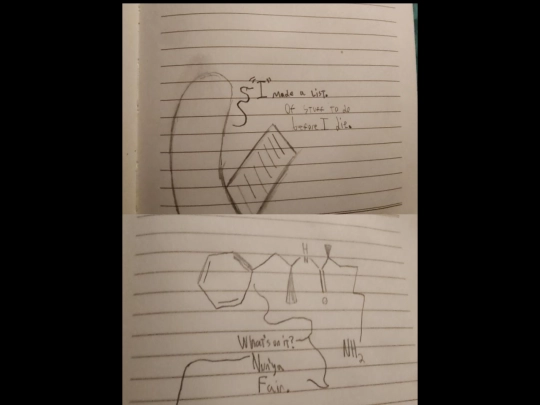 "I" made a List.
Of stuff to do
before I die.
H
N
O
What's on it?
NH2
Nun'ya
Fair.